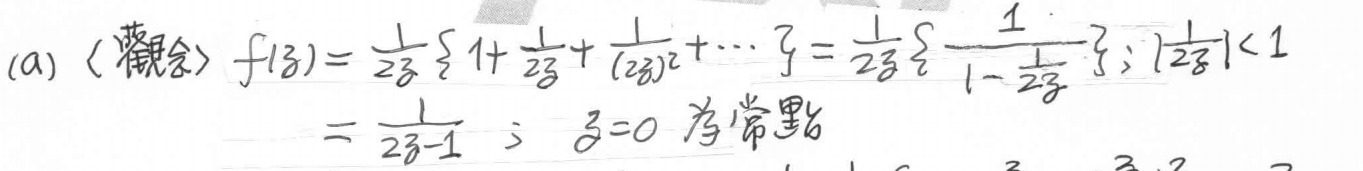 (a) 〈觀念〉 f(z) = \frac{1}{2z} { 1 + \frac{1}{2z} + \frac{1}{(2z)^2} + ⋯ } = \frac{1}{2z} { \frac{1}{1 - \frac{1}{2z}} } ; |\frac{1}{2z}| < 1
= \frac{1}{2z-1} ; z=0 為常點